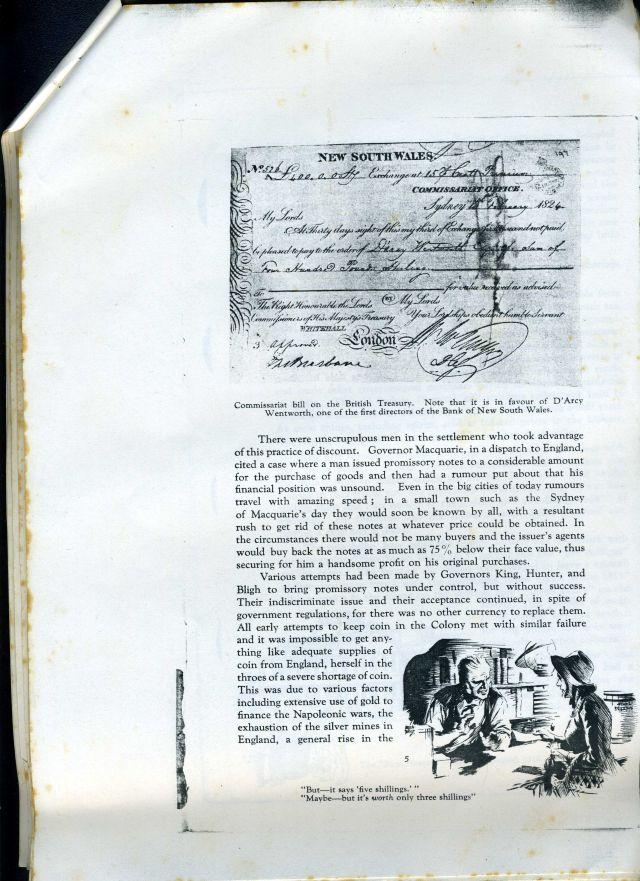 NEW SOUTH WALES.
No 526 £400.0.0 Stg Exchange at 15 Premium
COMMISSARIAT OFFICE.
Sydney February 1824
My Lords
At Thirty days sight of this my third of Exchange first second not paid,
be pleased to pay to the order of D'Arcy Wentworth Sum of
Four Hundred Pounds Sterling
for value received as advised
To
The Right Honourable the Lords My Lords
Commissioners of His Majesty's Treasury Your Lordships obedient humble Servant
WHITEHALL
London
3 Approved
Brisbane
Commissariat bill on the British Treasury. Note that it is in favour of D'Arcy
Wentworth, one of the first directors of the Bank of New South Wales.
There were unscrupulous men in the settlement who took advantage
of this practice of discount. Governor Macquarie, in a dispatch to England,
cited a case where a man issued promissory notes to a considerable amount
for the purchase of goods and then had a rumour put about that his
financial position was unsound. Even in the big cities of today rumours
travel with amazing speed; in a small town such as the Sydney
of Macquarie's day they would soon be known by all, with a resultant
rush to get rid of these notes at whatever price could be obtained. In
the circumstances there would not be many buyers and the issuer's agents
would buy back the notes at as much as 75% below their face value, thus
securing for him a handsome profit on his original purchases.
Various attempts had been made by Governors King, Hunter, and
Bligh to bring promissory notes under control, but without success.
Their indiscriminate issue and their acceptance continued, in spite of
government regulations, for there was no other currency to replace them.
All early attempts to keep coin in the Colony met with similar failure
and it was impossible to get any-
thing like adequate supplies of
coin from England, herself in the
throes of a severe shortage of coin.
This was due to various factors
including extensive use of gold to
finance the Napoleonic wars, the
exhaustion of the silver mines in
England, a general rise in the
5
"But—it says 'five shillings.' "
"Maybe—but it's worth only three shillings"